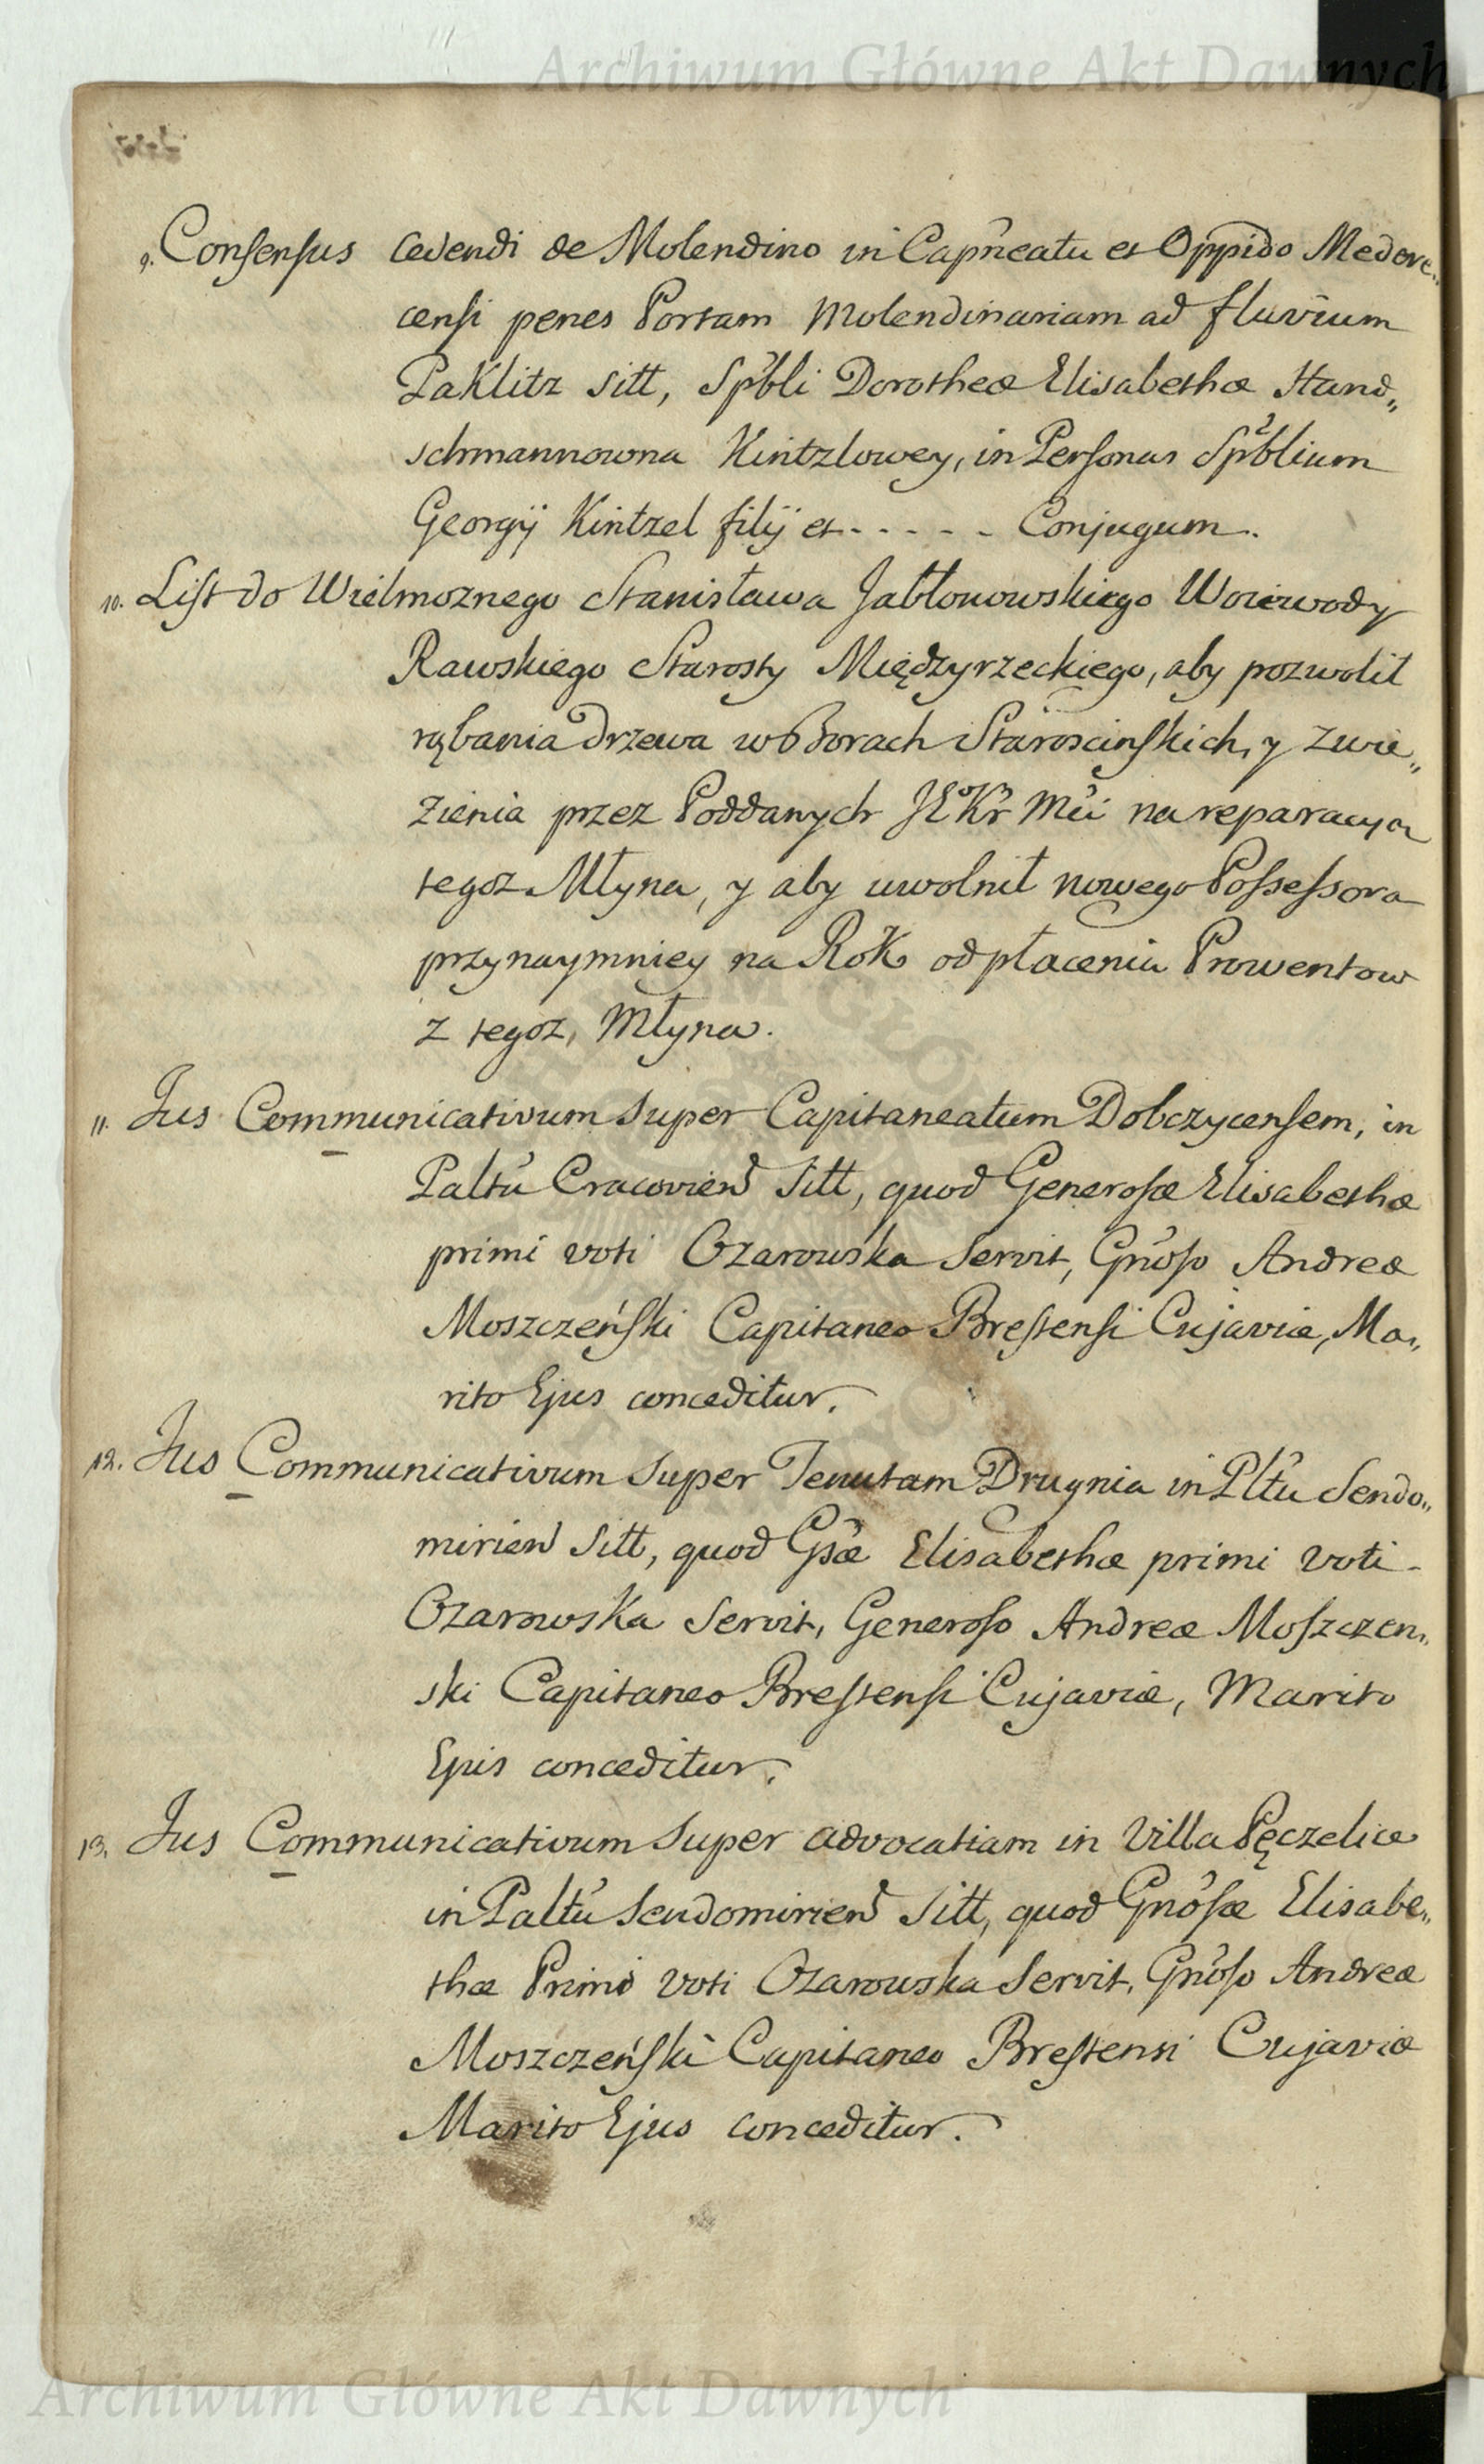 Archiwum Główne Akt Dawnych
9. Consensus cedendi de Molendino in Capñeatu et Oppido Medere„
censi penes Portam Molendinariam ad fluvium
Paklitz sitt, Spbli Dorotheæ Elisabethæ Hand„
schmannowna Kintzlowey, in Personas Spblium
Georgij Kintzel filij et - - - - - Conjugum.
10. List do Wielmoznego Stanisława Jabłonowskiego Woiewody
Rawskiego Starosty Międzyrzeckiego, aby pozwolił
rąbania drzewa w Borach Staroscinskich, y zwie„
zienia przez Poddanych JEKr Mći na reparacyą
tegoz Młyna, y aby uwolnił nowego Possessora
przynaymniey na Rok od płacenia Prowentow
z tegoz, Młyna.
11. Jus Communicativum super Capitaneatum Dobczycensem, in
Paltu Cracovien sitt, quod Generosæ Elisabethæ
primi voti Ozarowska servit, Gnoso Andreæ
Moszczeński Capitaneo Brestensi Cujaviæ, Ma„
rito Ejus conceditur.
12. Jus Communicativum super Tenutam Drugnia in Pltu Sendo„
mirien sitt, quod Gsæ Elisabethæ primi voti
Ozarowska servit, Generoso Andreæ Moszczen„
ski Capitaneo Brestensi Cujaviæ, Marito
Ejus conceditur.
13. Jus Communicativum super advocatiam in Villa Pęczelice
in Paltu Sendomirien sitt, quod Gnosæ Elisabe„
thæ Primi voti Ozarowska servit, Gnoso Andreæ
Moszczeński Capitaneo Brestensi Cujaviæ
Marito Ejus conceditur.
Archiwum Główne Akt Dawnych